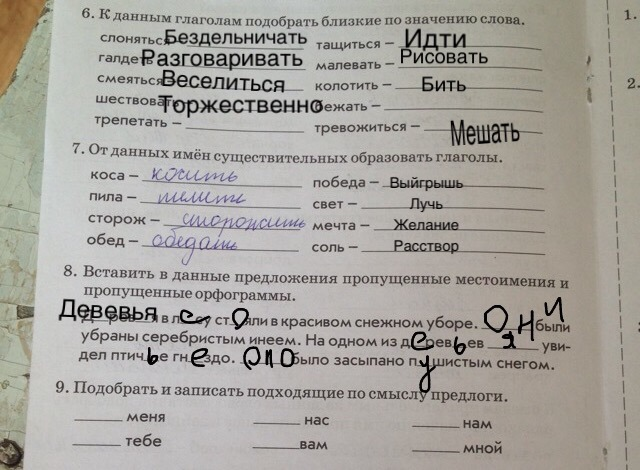 6. К данным глаголам подобрать близкие по значению слова.
слоняться – Бездельничать тащиться – Идти
галдеть Разговаривать малевать – Рисовать
смеяться Веселиться колотить – Бить
шествовать Торжественно бежать –
трепетать – тревожиться – Мешать
7. От данных имён существительных образовать глаголы.
коса – косить победа – Выйгрышь
пила – пилить свет – Лучь
сторож – сторожить мечта – Желание
обед – обедать соль – Расствор
8. Вставить в данные предложения пропущенные местоимения и
пропущенные орфограммы.
Девевья в лесу стояли в красивом снежном уборе. Они были
убраны серебристым инеем. На одном из деревьев я уви-
дел птичье гнездо. Оно было засыпано пушистым снегом.
9. Подобрать и записать подходящие по смыслу предлоги.
меня нас нам
тебе вам мной
1.
2.